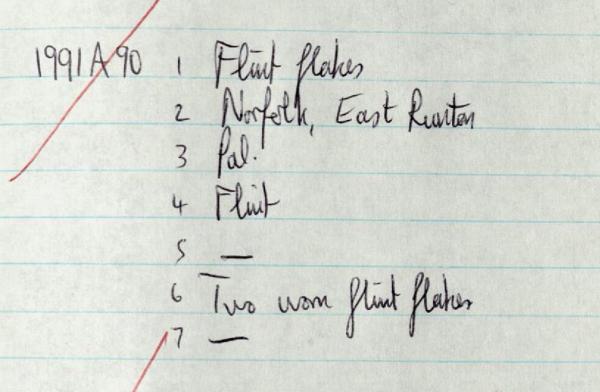 1991A90 1 Flint flakes
2 Norfolk, East Runton
3 Pal.
4 Flint
5 —
6 Two worn flint flakes
7 —